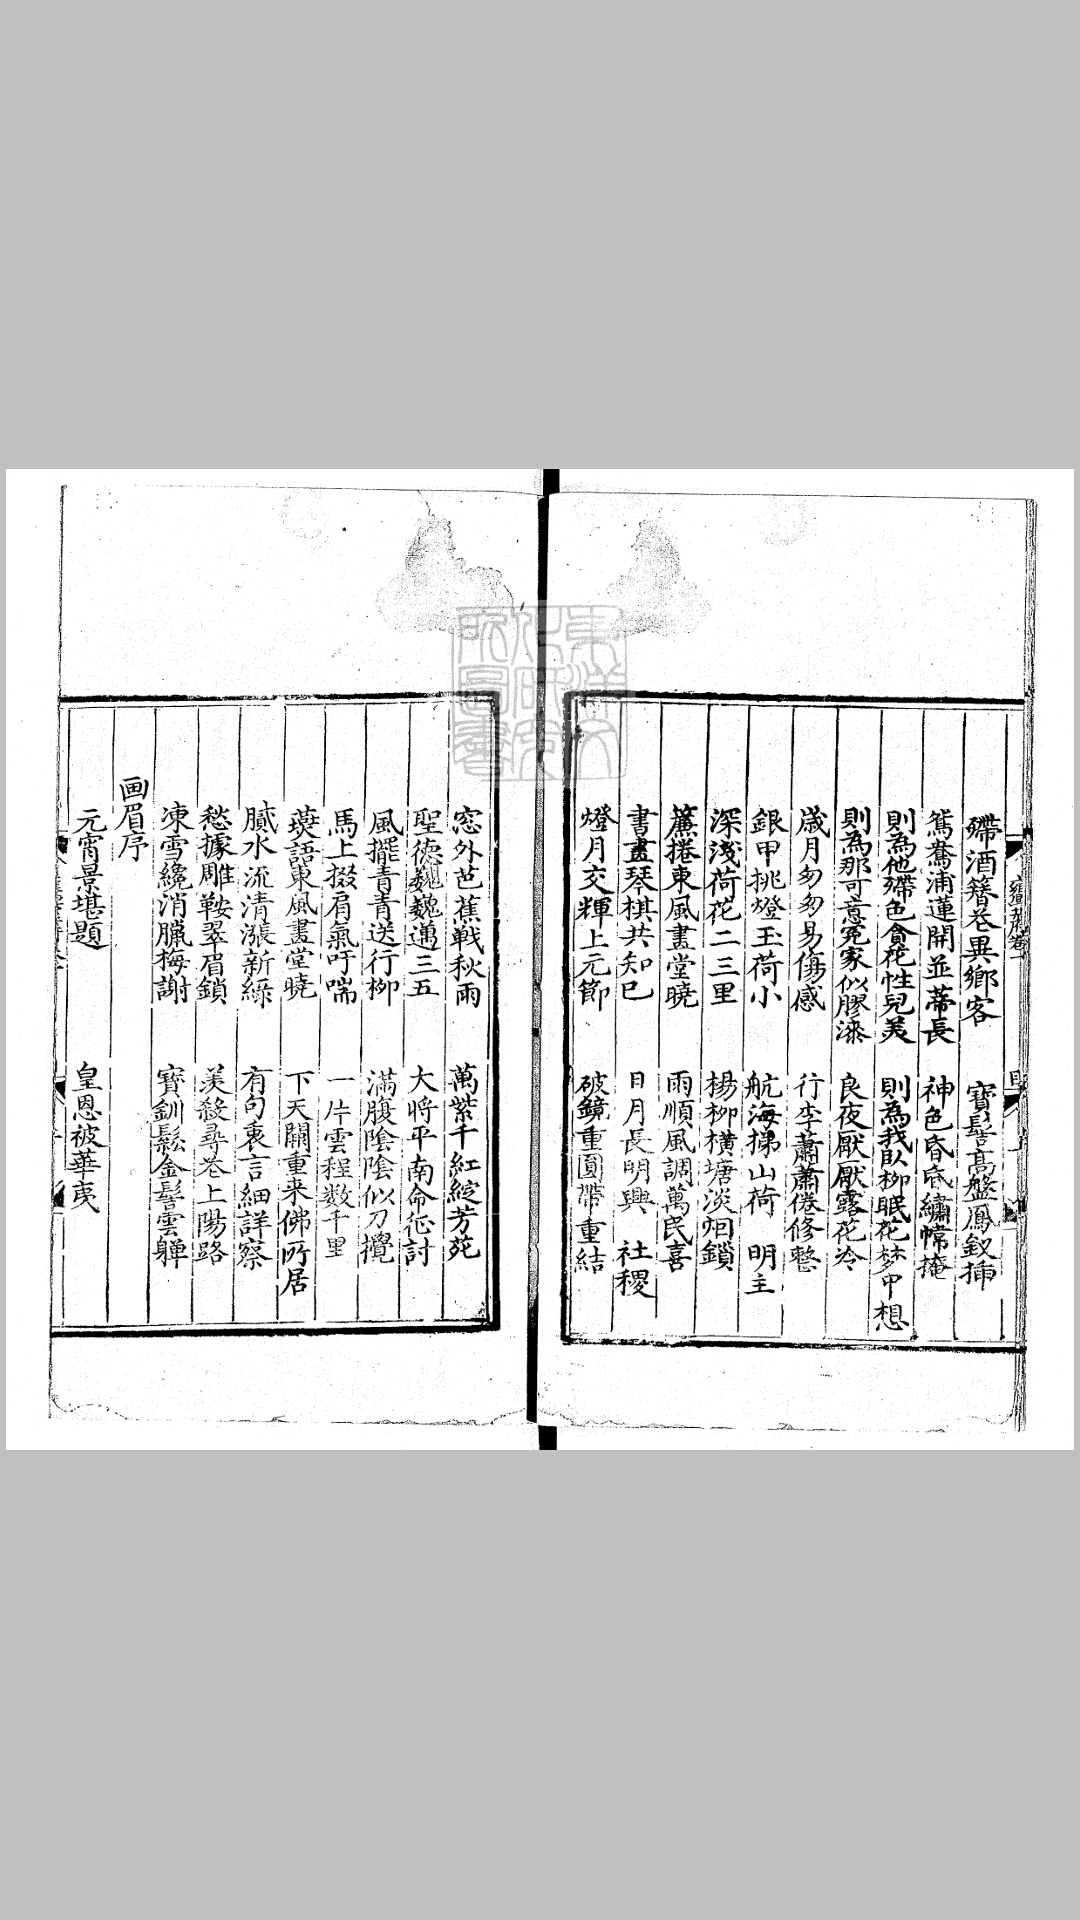 殢酒簪花異鄉客　寶髻高盤鳳釵插
鴛鴦浦蓮開並蒂長　神色昏昏繡幃掩
則為他殢色貪花性兒美　則為我臥柳眠花梦中想
則為那可意冤家似膠漆　良夜厭厭露花冷
歲月匆匆易傷感　行李蕭蕭倦修整
銀甲挑燈玉荷小　航海梯山荷　明主
深淺荷花二三里　楊柳橫塘淡烟鎖
簾捲東風畫堂曉　雨順風調萬民喜
書畫琴棋共知己　日月長明興　社稷
燈月交輝上元節　破鏡重圓帶重結
窓外芭蕉戰秋雨　萬紫千紅綻芳苑
聖德巍巍邁三五　大將平南命征討
風擺青青送行柳　滿腹陰陰似刀攪
馬上掇肩氣吁喘　一片雲程数千里
語東風畫堂曉　下天關重来佛所居
膩水流清漲新綠　有句衷言細詳察
愁據雕鞍翠眉鎖　美殺尋巷上陽路
凍雪纔消臘梅謝　寶釧鬆金髻雲軃
画眉序
元宵景堪題　皇恩被華夷